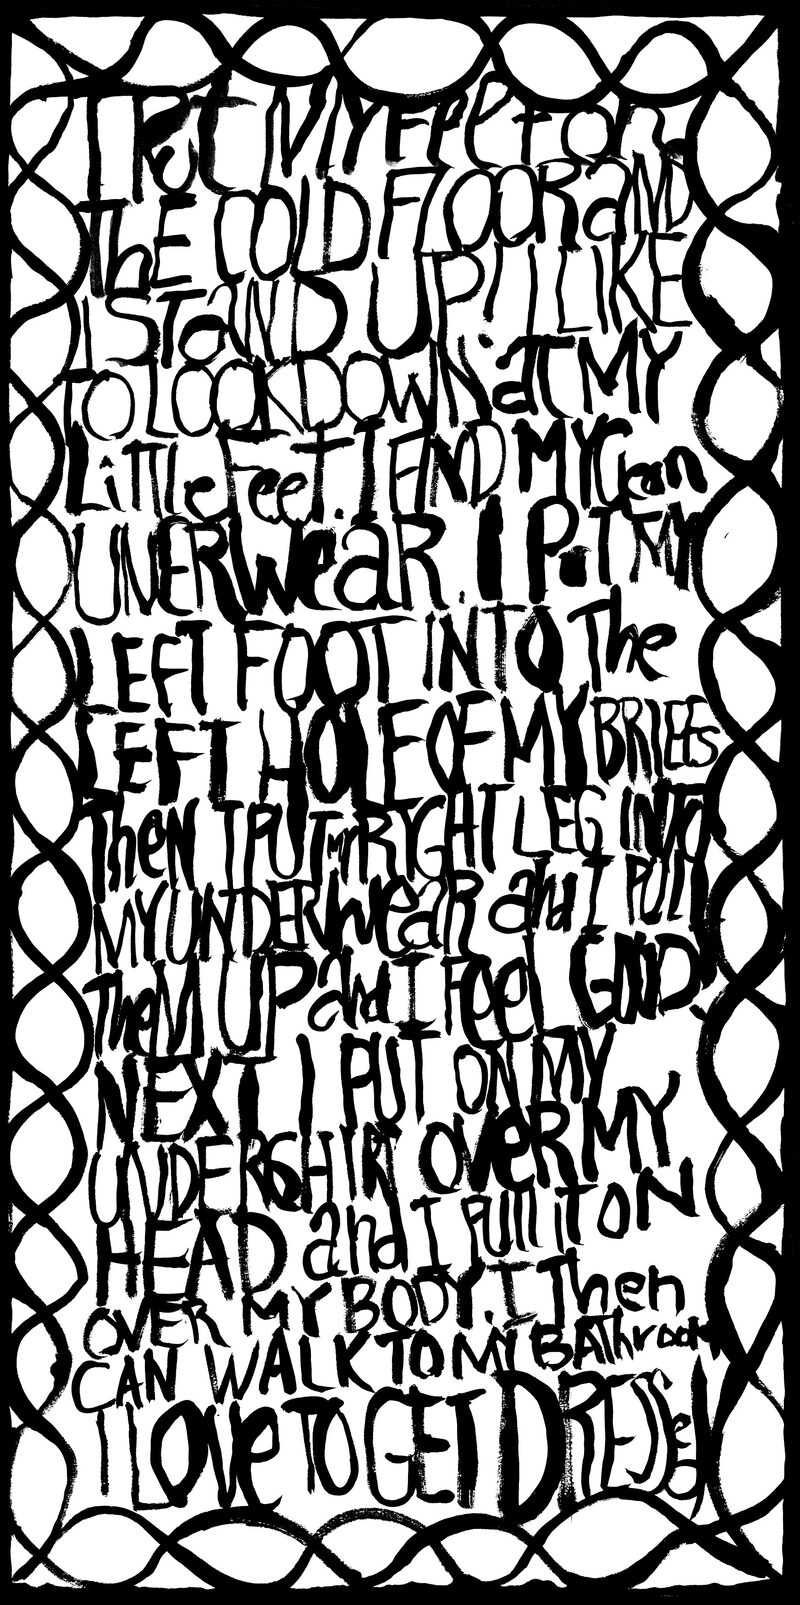 I PUt MY Feet on
ThE COLD FlOOR aND
I STaND UP! I LIKE
TO LOOK DOWN at MY
Little Feet. I FIND MY Clean
UNERWeaR. I PuT MY
LEFT FOOT INTO The
LEFT HOLE OF MY BRIEFS
TheN I PUT MY RIGHT LEG INTO
MY UNDERWeaR and I PULL
TheM UP and I FeeL GOOD.
NEXT I PUT ON MY
UNDERSHIRT OVeR MY
HEAD and I PUll iT ON
OVER MY BODY. I Then
CAN WALK TO MY BAThrooM
I LOVe TO GET DRESSed